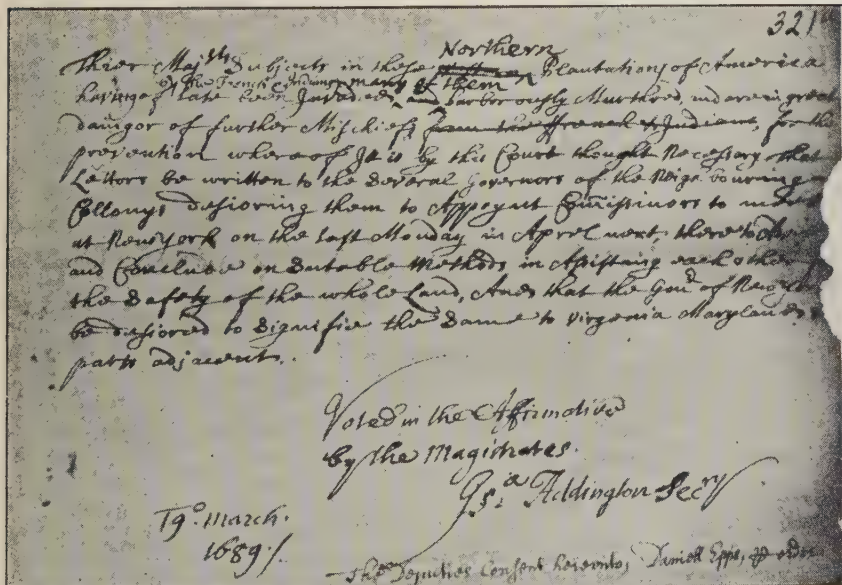 321
Northern
Thier Maj^ties Subjects in these Plantations of America
by the French & Indians many of them
haveing of late been Invaded and barborously Murthred, and are in great
daingor of further Mischiefs from the French & Indians, for the
prevention whereof It is by this Court thought Necessary that
Lettors be written to the Several Governors of the Neighbouring
Collonys desioring them to Appoynt Comissinors to meet
at New York on the last Monday in Aprel next, there to
and Conclude on Sutable Methods in Assisting each other
the Safety of the whole Land, And that the Gou^r of New
be desiored to Signifie the Same to Virginia Maryland &
parts adjacent.
Voted in the Affirmative
by the Magistrates.
Js^a Addington Secr^y
19^o. March.
1689/
The Deputies Consent hereunto, Daniell Epps, p order